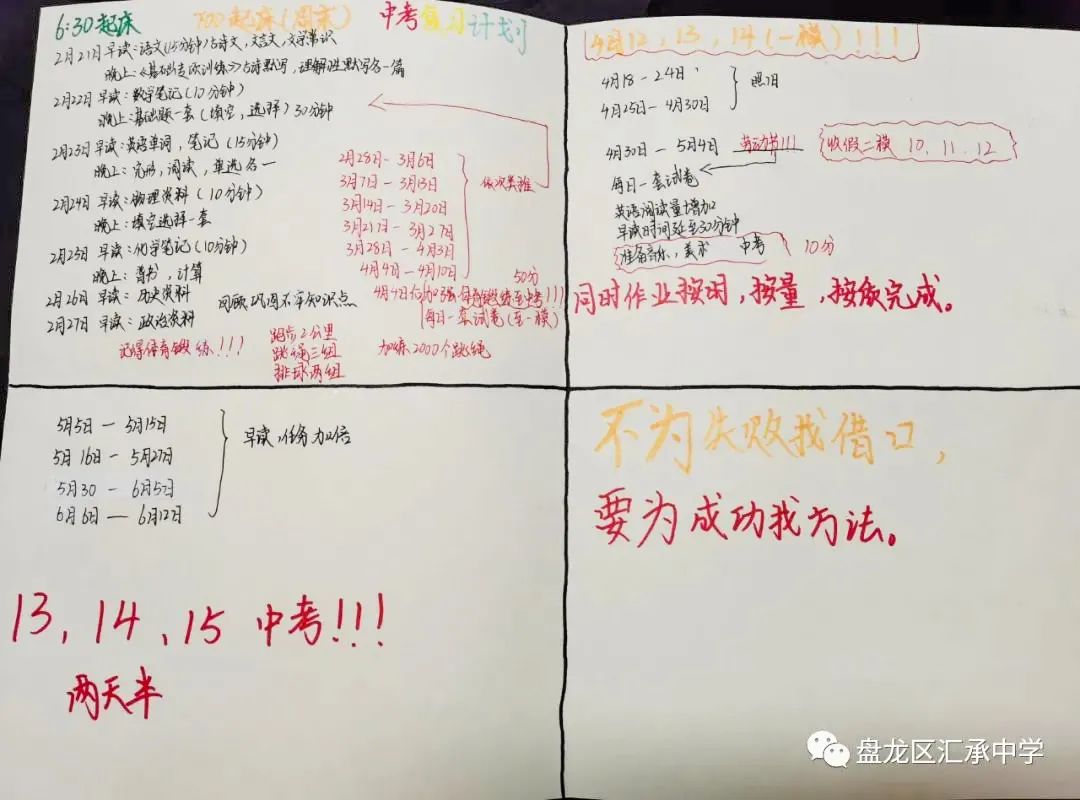 6:30起床 7:00起床(周末) 中考复习计划
2月21日 早读:语文(15分钟)古诗文,文言文,文学常识
晚上:《基础专项训练》古诗默写,理解性默写各一篇
2月22日 早读:数学笔记(10分钟)
晚上:基础题一套(填空,选择)30分钟
2月23日 早读:英语单词,笔记(15分钟)
晚上:完形,阅读,单选各一
2月24日 早读:物理资料(10分钟)
晚上:填空选择一套
2月25日 早读:化学笔记(10分钟)
晚上:背书,计算
2月26日 早读:历史资料
2月27日 早读:政治资料
回顾巩固不牢知识点
记得体育锻炼!!!
跑步2公里
跳绳三组
排球两组
加练2000个跳绳
2月28日-3月6日
3月7日-3月13日
3月14日-3月20日
3月21日-3月27日
3月28日-4月3日
4月4日-4月10日
依次类推
50分
4月4日后加强体育锻炼至中考!!!
每日一套试卷(至一模)
4月12,13,14(一模)!!!
4月18-24日
4月25日-4月30日
照旧
4月30日-5月4日 劳动节!!! 收假二模 10、11、12
每日一套试卷
英语阅读量增加
早读时间延至30分钟
准备音乐,美术 中考 10分
同时作业按时,按量,按质完成。
5月5日-5月15日
5月16日-5月27日
5月30-6月5日
6月6日-6月12日
早读,任务加倍
13,14、15 中考!!!
两天半
不为失败找借口,
要为成功找方法。
盘龙区汇承中学